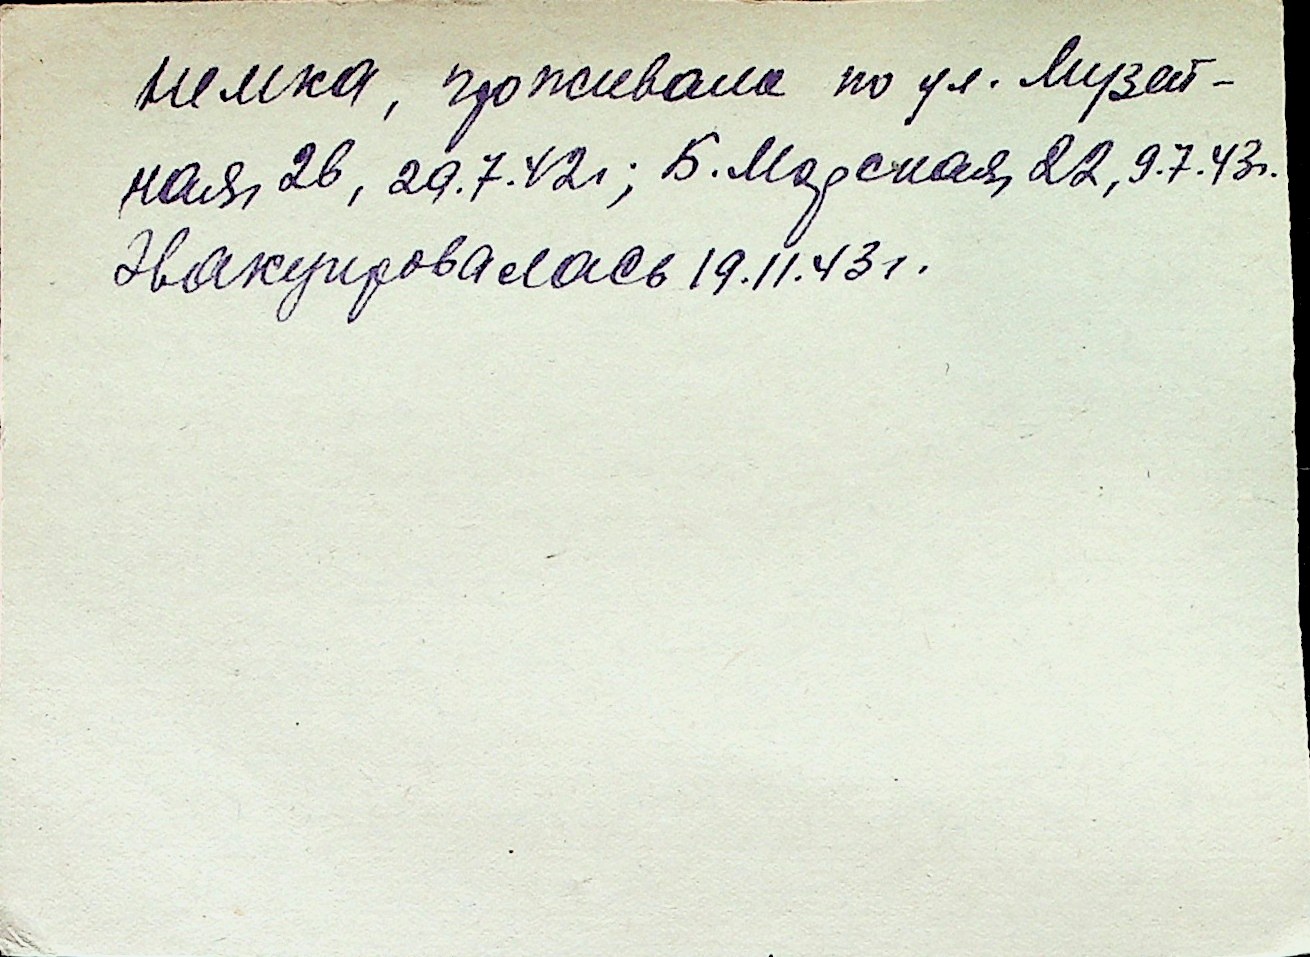 немка, проживала по ул. Музей-
ная, 2в, 29.7.42г; Б. Морская, 22, 9.7.43г.
Эвакуировалась 19.11.43г.